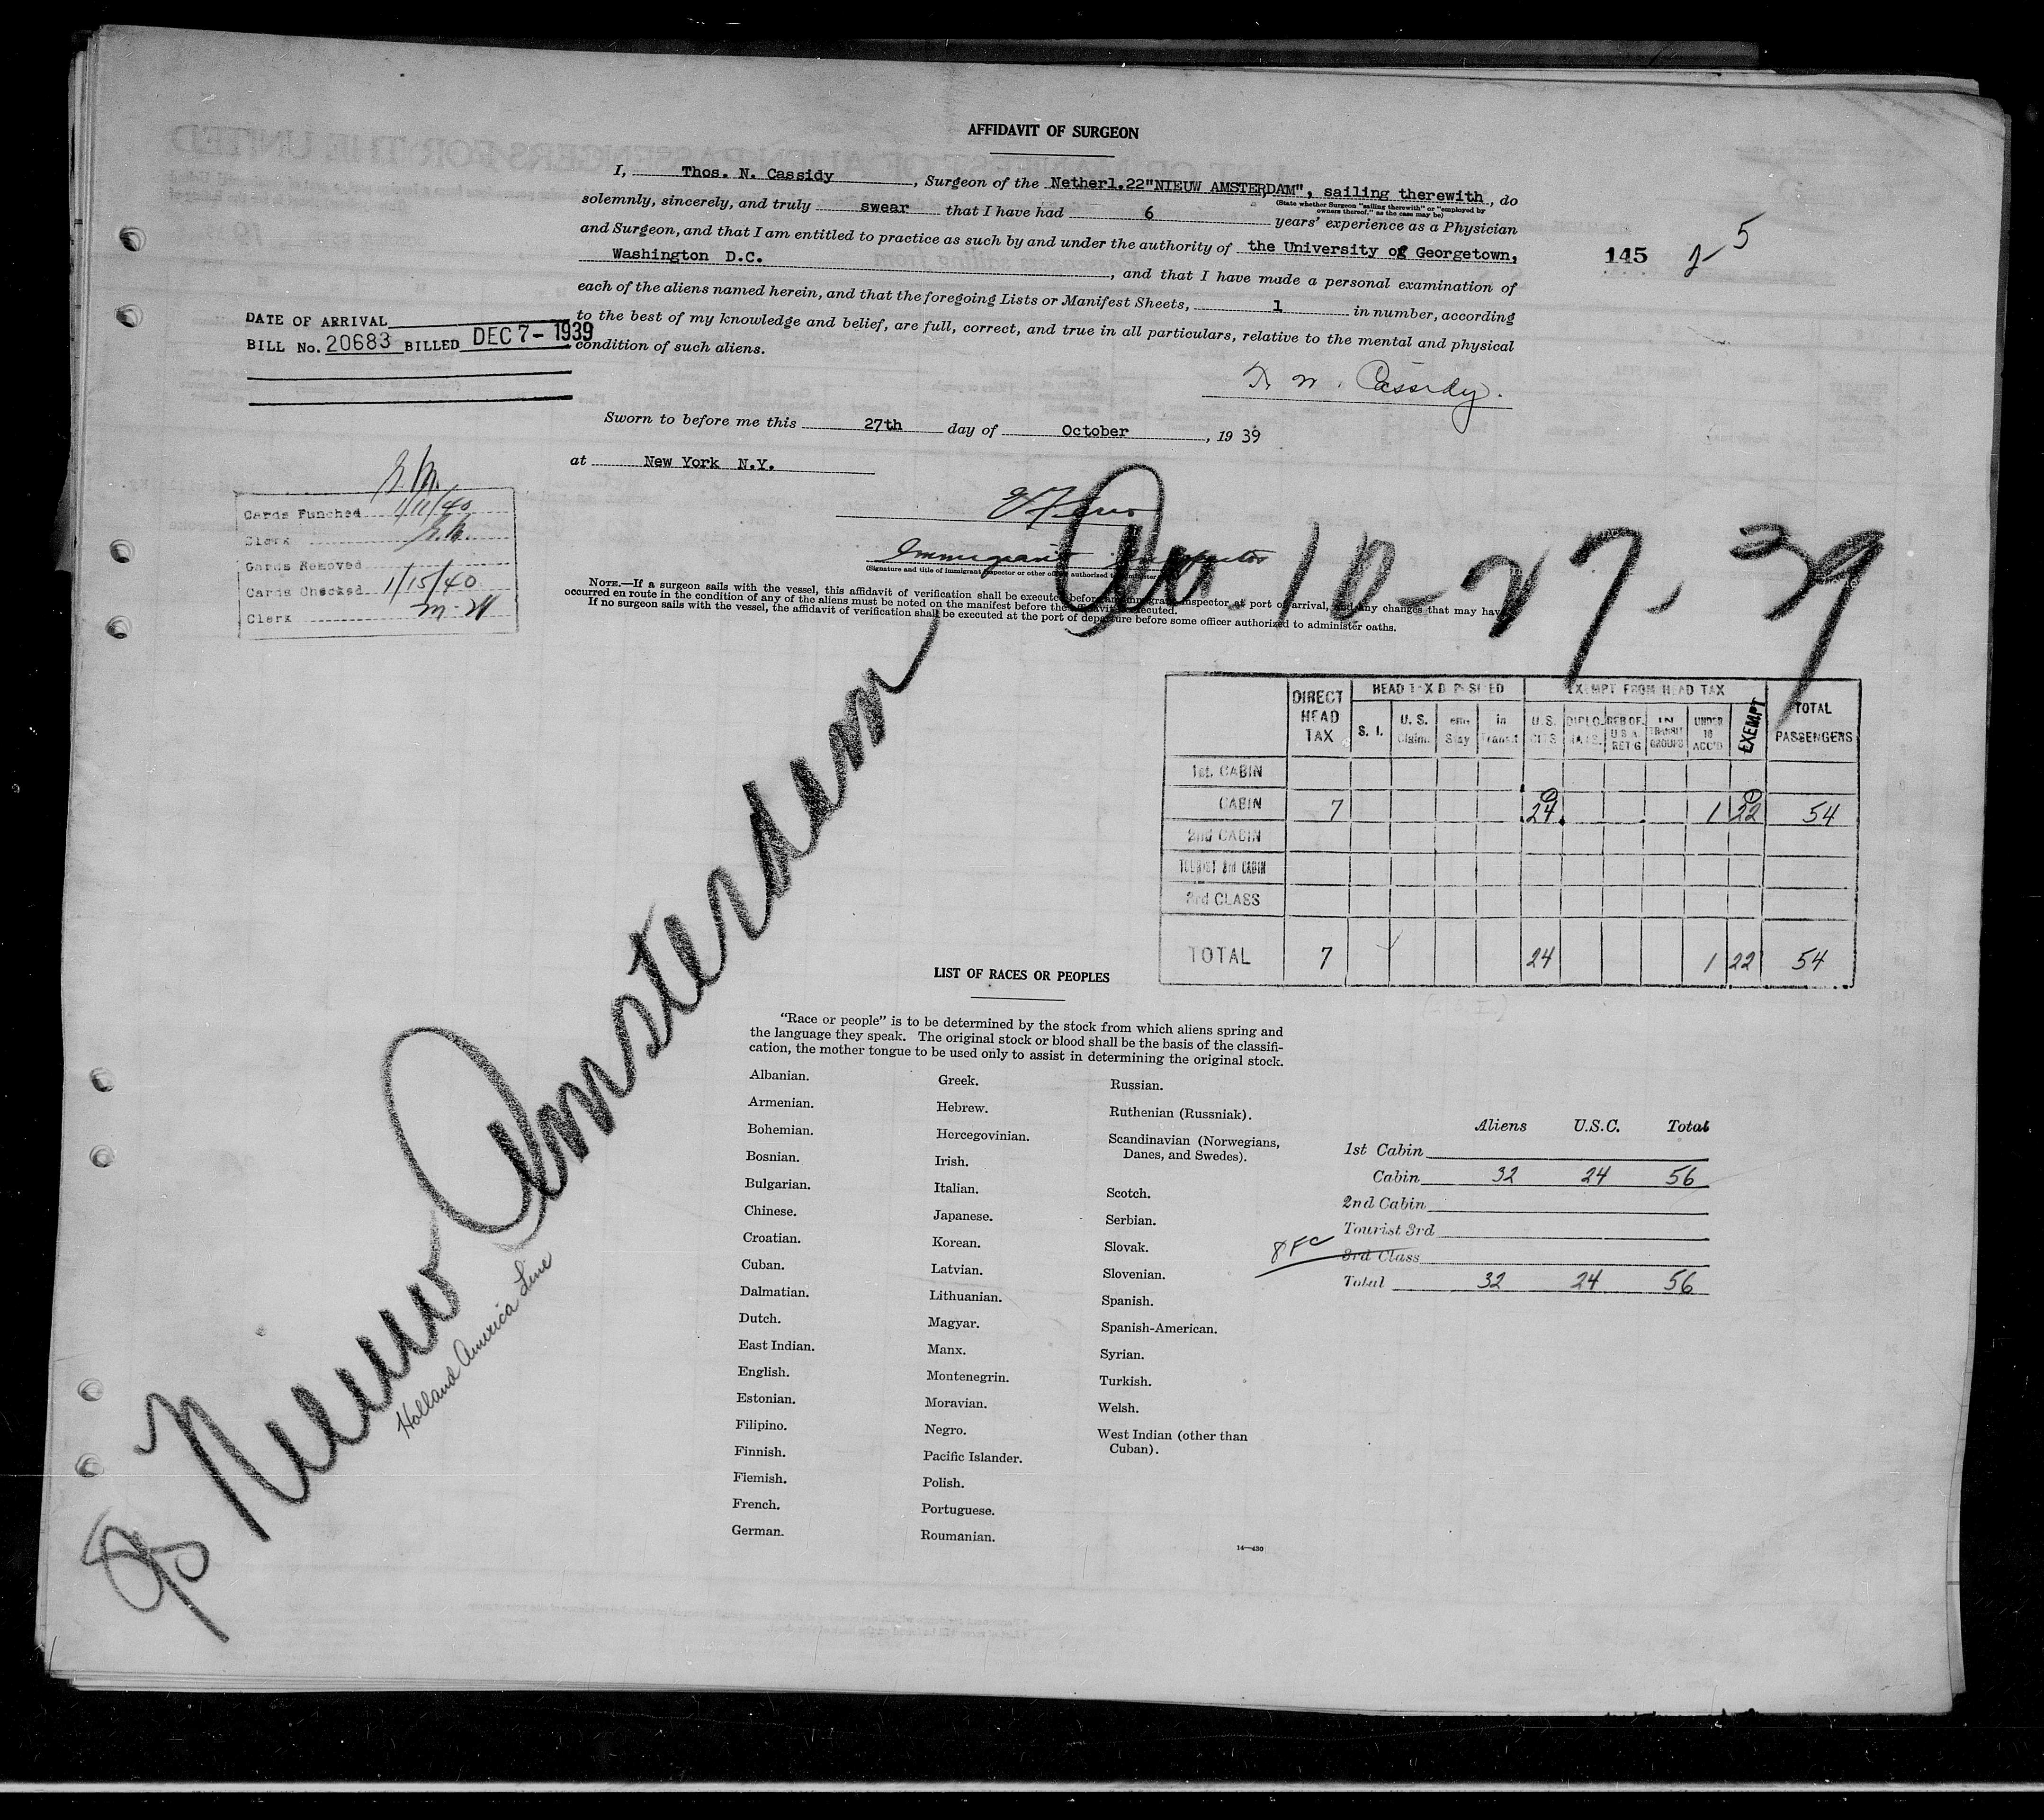 AFFIDAVIT OF SURGEON
I, Thos. N. Cassidy, Surgeon of the Netherl.22"NIEUW AMSTERDAM", sailing therewith, do
(State whether Surgeon "sailing therewith" or "employed by
owners thereof," as the case may be)
solemnly, sincerely, and truly swear that I have had 6 years' experience as a Physician
and Surgeon, and that I am entitled to practice as such by and under the authority of the University of Georgetown,
Washington D.C., and that I have made a personal examination of
each of the aliens named herein, and that the foregoing Lists or Manifest Sheets, 1 in number, according
to the best of my knowledge and belief, are full, correct, and true in all particulars, relative to the mental and physical
condition of such aliens.
145
5
DATE OF ARRIVAL
BILL No. 20683 BILLED DEC 7- 1939
Cassidy.
Sworn to before me this 27th day of October, 1939
at New York N.Y.
Immigrant Inspector
(Signature and title of immigrant inspector or other officer authorized to administer
Arr. 10-27, 39
Cards Punched 1/11/40
Clerk
Cards Removed
Cards Checked 1/15/40
Clerk
NOTE.—If a surgeon sails with the vessel, this affidavit of verification shall be executed before an immigrant inspector at port of arrival, and any changes that may have
occurred en route in the condition of any of the aliens must be noted on the manifest before the affidavit is executed.
If no surgeon sails with the vessel, the affidavit of verification shall be executed at the port of departure before some officer authorized to administer oaths.
DIRECT HEAD TAX HEAD TAX DEPOSITED EXEMPT FROM HEAD TAX TOTAL PASSENGERS
S. I. U. S. Claim. Stay in Transit U.S. CITS DIPLO. U.S.A. RET'G IN TRANSIT GROUPS UNDER 16 ACC'D EXEMPT
1st. CABIN
CABIN 7 24 1 22 54
2nd CABIN
TOURIST 3rd CABIN
3rd CLASS
TOTAL 7 24 1 22 54
Nieuw Amsterdam
Holland America Line
LIST OF RACES OR PEOPLES
"Race or people" is to be determined by the stock from which aliens spring and
the language they speak. The original stock or blood shall be the basis of the classifi-
cation, the mother tongue to be used only to assist in determining the original stock.
Albanian.
Armenian.
Bohemian.
Bosnian.
Bulgarian.
Chinese.
Croatian.
Cuban.
Dalmatian.
Dutch.
East Indian.
English.
Estonian.
Filipino.
Finnish.
Flemish.
French.
German.
Greek.
Hebrew.
Hercegovinian.
Irish.
Italian.
Japanese.
Korean.
Latvian.
Lithuanian.
Magyar.
Manx.
Montenegrin.
Moravian.
Negro.
Pacific Islander.
Polish.
Portuguese.
Roumanian.
Russian.
Ruthenian (Russniak).
Scandinavian (Norwegians,
Danes, and Swedes).
Scotch.
Serbian.
Slovak.
Slovenian.
Spanish.
Spanish-American.
Syrian.
Turkish.
Welsh.
West Indian (other than
Cuban).
14—430
Aliens U.S.C. Total
1st Cabin
Cabin 32 24 56
2nd Cabin
Tourist 3rd
8FC 3rd Class
Total 32 24 56